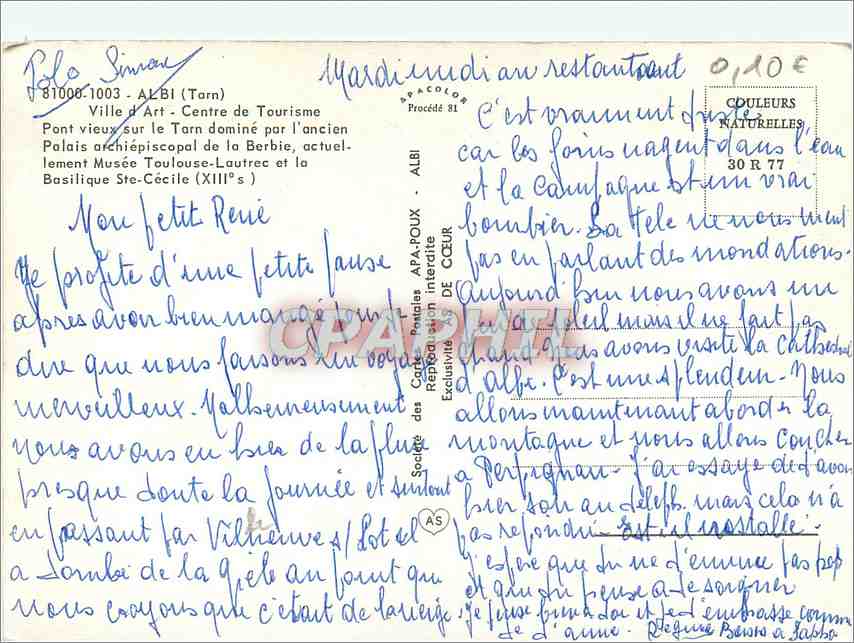 Mardi midi au restaurant
0,10 €
81000-1003 - ALBI (Tarn)
Ville d'Art - Centre de Tourisme
Pont vieux sur le Tarn dominé par l'ancien
Palais archiépiscopal de la Berbie, actuel-
lement Musée Toulouse-Lautrec et la
Basilique Ste-Cécile (XIII°s)
APACOLOR
Procédé 81
COULEURS
NATURELLES
30 R 77
Société des Cartes Postales APA-POUX - ALBI
Reproduction interdite
Exclusivité AS DE CŒUR
AS
CPAPHIL
Mon petit René
Je profite d'une petite pause
après avoir bien mangé pour te
dire que nous faisons un voyage
merveilleux. Malheureusement
nous avons eu hier de la pluie
presque toute la journée et surtout
en passant par Villeneuve s/Lot il
a tombé de la grêle au point que
nous croyons que c'était de la neige.
C'est vraiment triste
car les foins nagent dans l'eau
et la campagne est un vrai
bourbier. La télé ne nous ment
pas en parlant des inondations.
Aujourd'hui nous avons un
soleil mais il ne fait pas
chaud. Nous avons visité la Cathédrale
d'Albi. C'est une splendeur. Nous
allons maintenant aborder la
montagne et nous allons coucher
a Perpignan. J'ai essayé de t'avoir
hier soir au téléph. mais cela n'a
pas répondu. Est-il installé.
J'espère que tu ne t'ennuies pas trop
et que tu penses a te soigner
Je pense bien a toi et je t'embrasse comme
je t'aime.